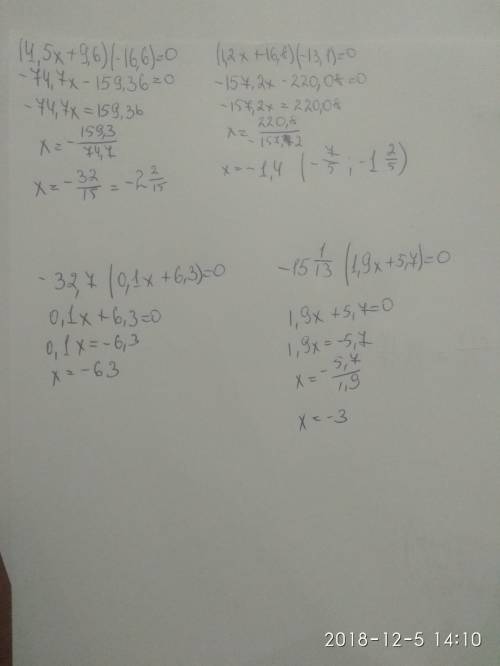 (4,5x+9,6)(-16,6)=0
-74,7x-159,36=0
-74,7x=159,36
x=-159,3/74,7
x=-32/15=-2 2/15
(1,2x+16,8)(-13,1)=0
-157,2x-220,08=0
-157,2x=220,08
x=220,8/-157,2
x=-1,4 (-7/5; -1 2/5)
-32,7(0,1x+6,3)=0
0,1x+6,3=0
0,1x=-6,3
x=-63
-15 1/13 (1,9x+5,7)=0
1,9x+5,7=0
1,9x=-5,7
x=-5,7/1,9
x=-3
2018-12-5 14:10